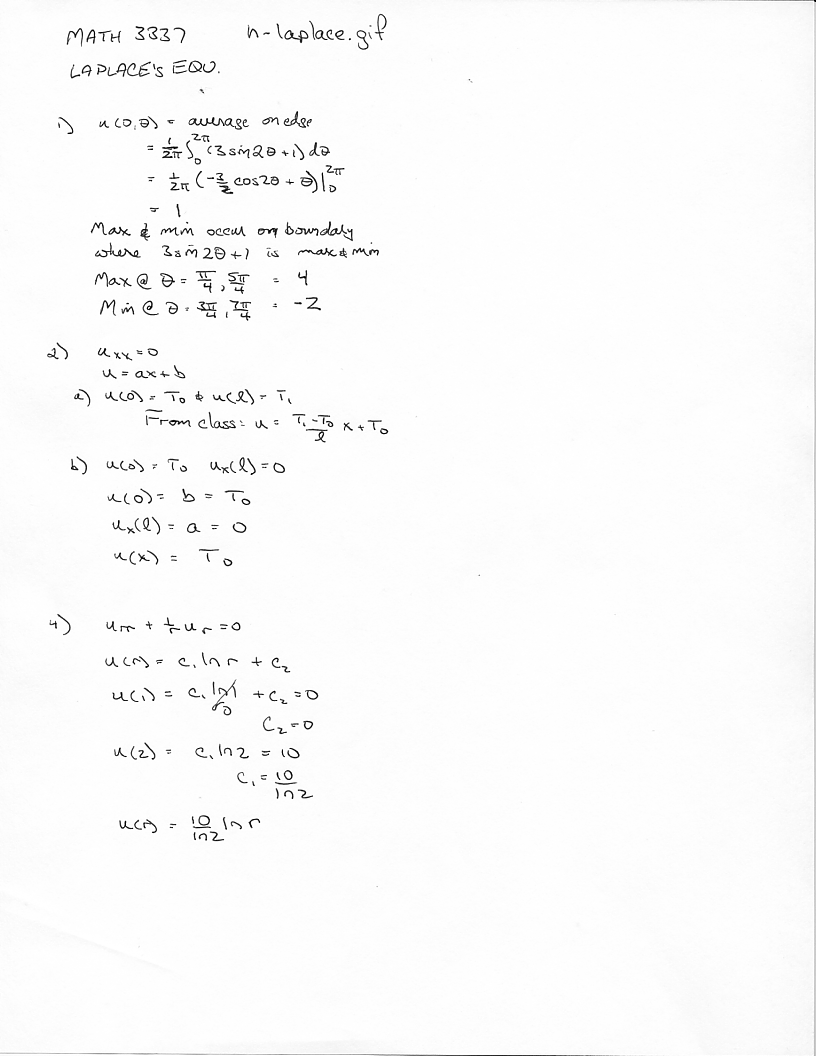 MATH 3337 h-laplace.gif
LAPLACE'S EQU.
1) u(0,θ) = average on edge
= 1/2π ∫₀^2π (3sin2θ+1) dθ
= 1/2π (-3/2 cos2θ + θ)|₀^2π
= 1
Max & min occur on boundary
where 3sin2θ+1 is max & min
Max @ θ = π/4, 5π/4 = 4
Min @ θ = 3π/4, 7π/4 = -2
2) u_xx = 0
u = ax + b
a) u(0) = T₀ & u(l) = T₁
From class: u = (T₁-T₀)/l x + T₀
b) u(0) = T₀ u_x(l) = 0
u(0) = b = T₀
u_x(l) = a = 0
u(x) = T₀
4) u_rr + 1/r u_r = 0
u(r) = c₁ ln r + c₂
u(1) = c₁ ln 1 + c₂ = 0
0
C₂ = 0
u(2) = c₁ ln 2 = 10
C₁ = 10/ln 2
u(r) = 10/ln 2 ln r